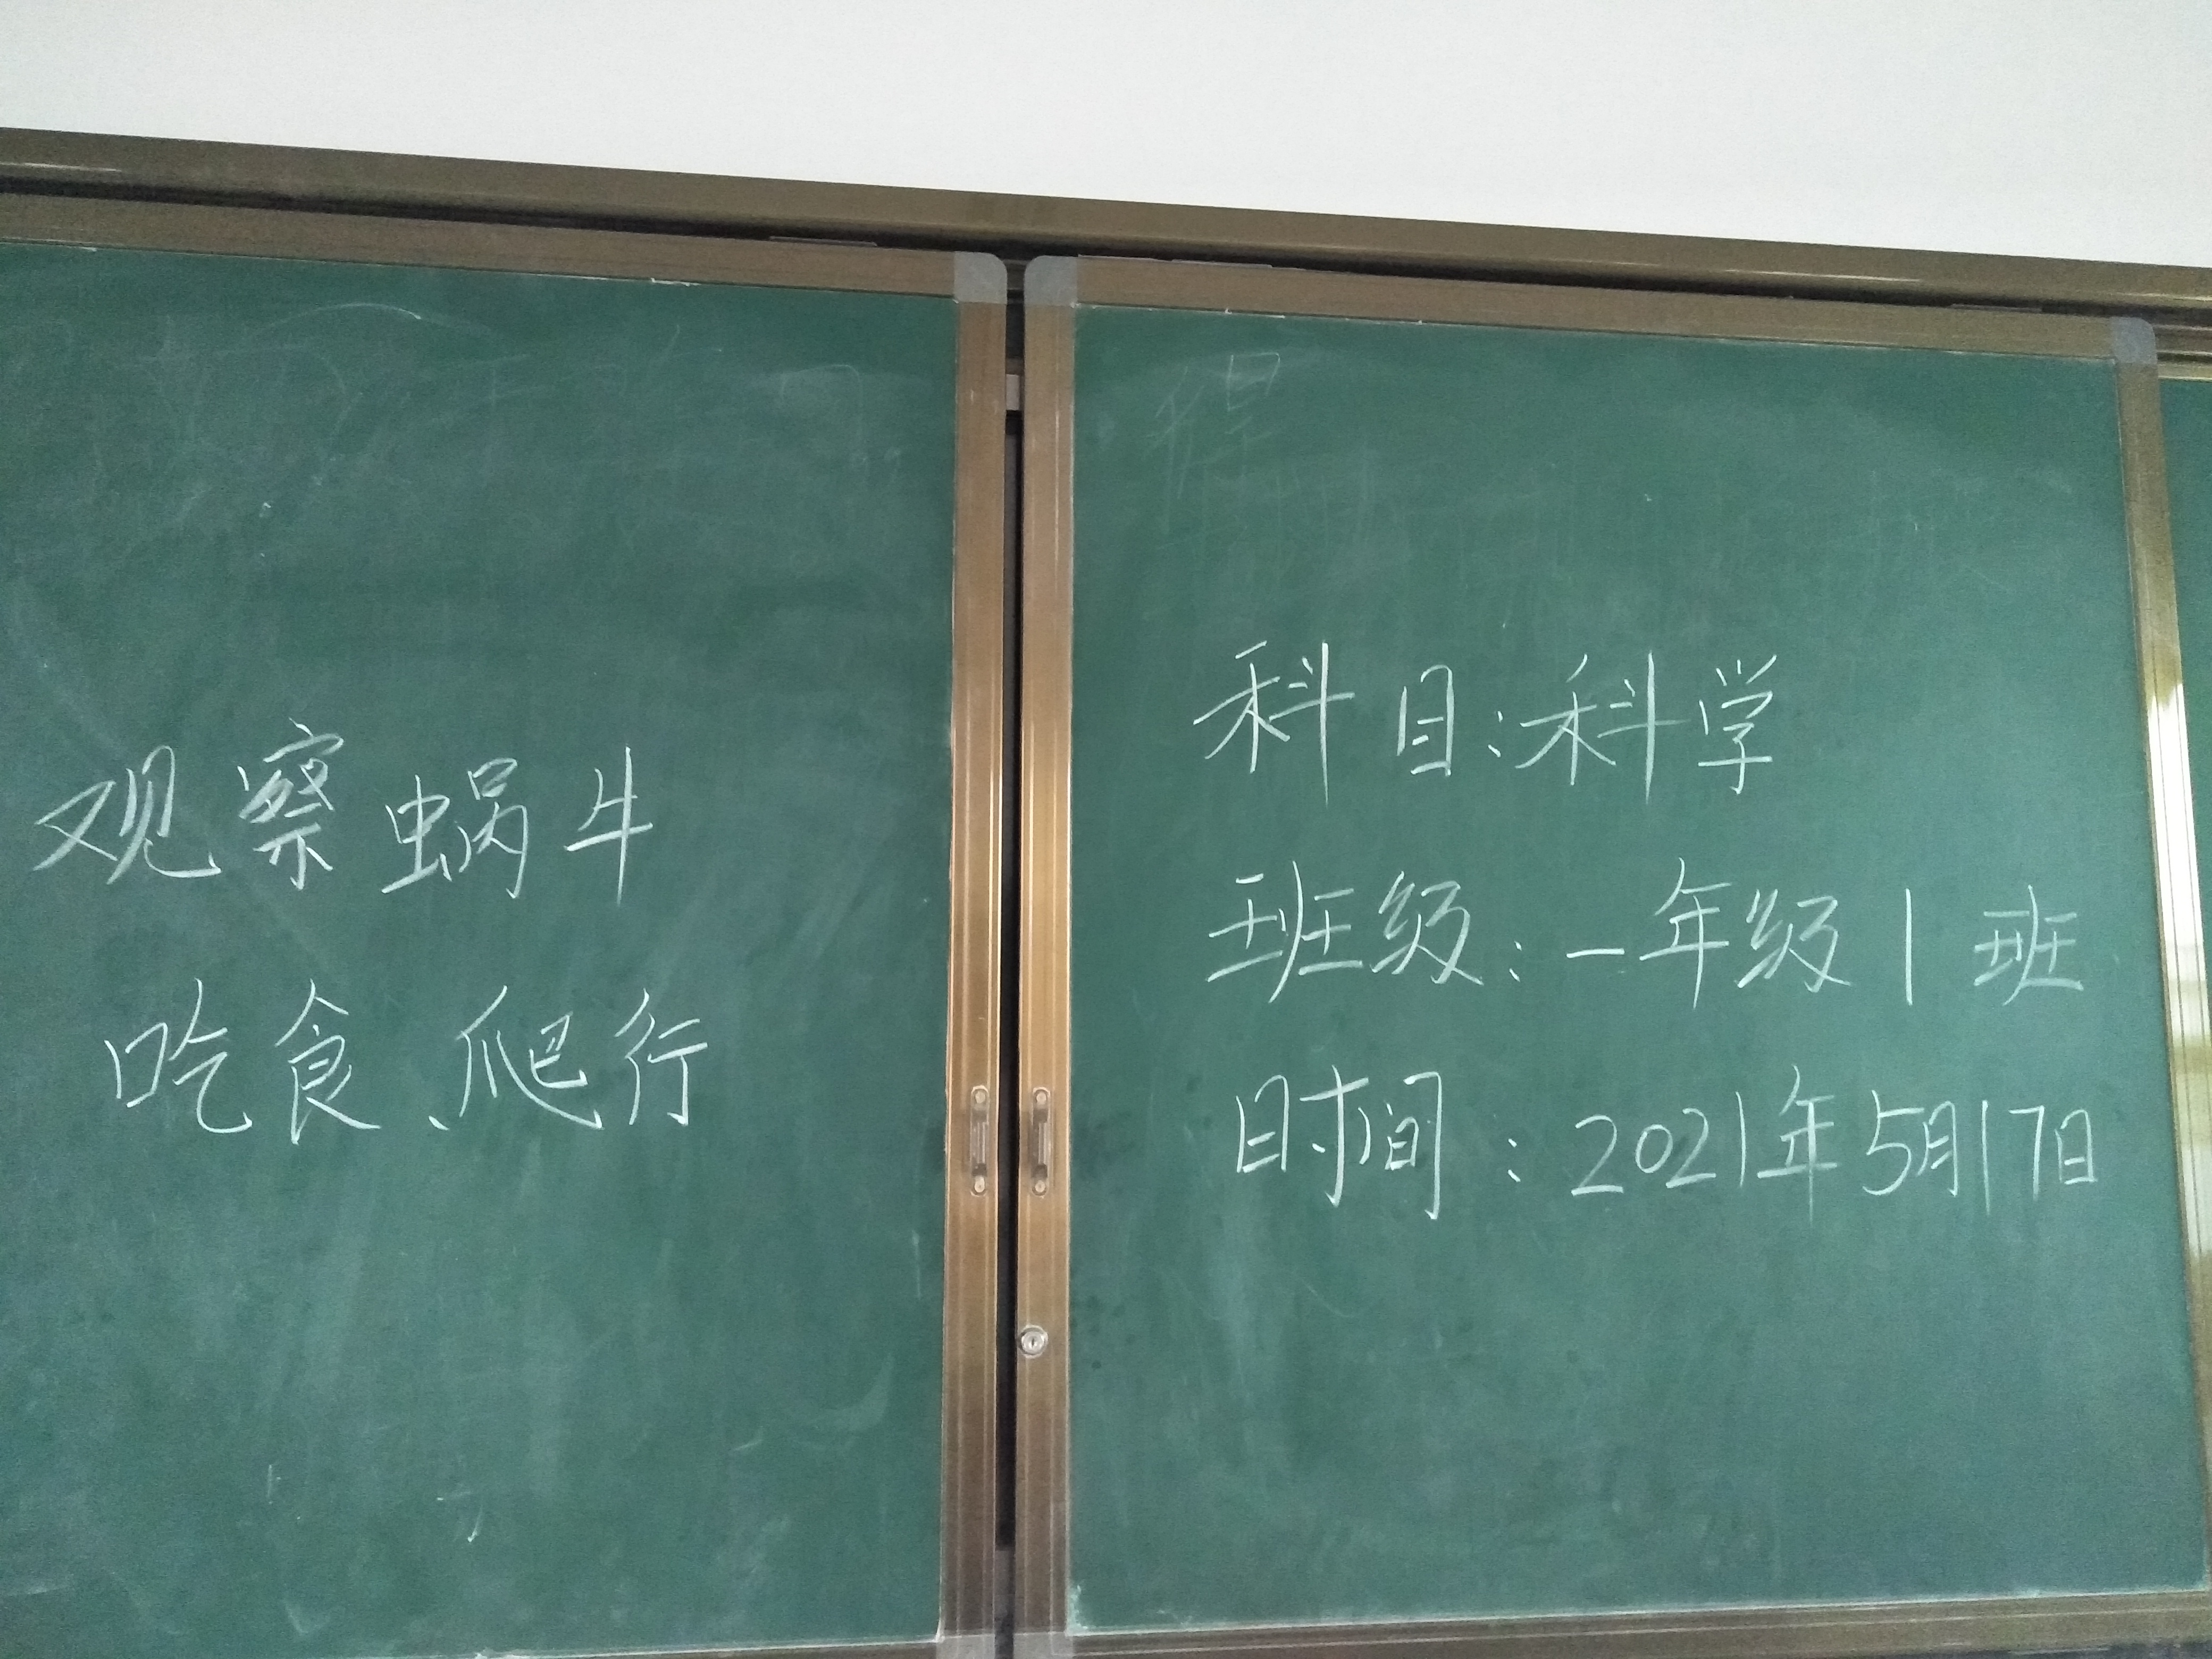 观察蜗牛
吃食、爬行
科目:科学
班级:一年级1班
时间:2021年5月17日